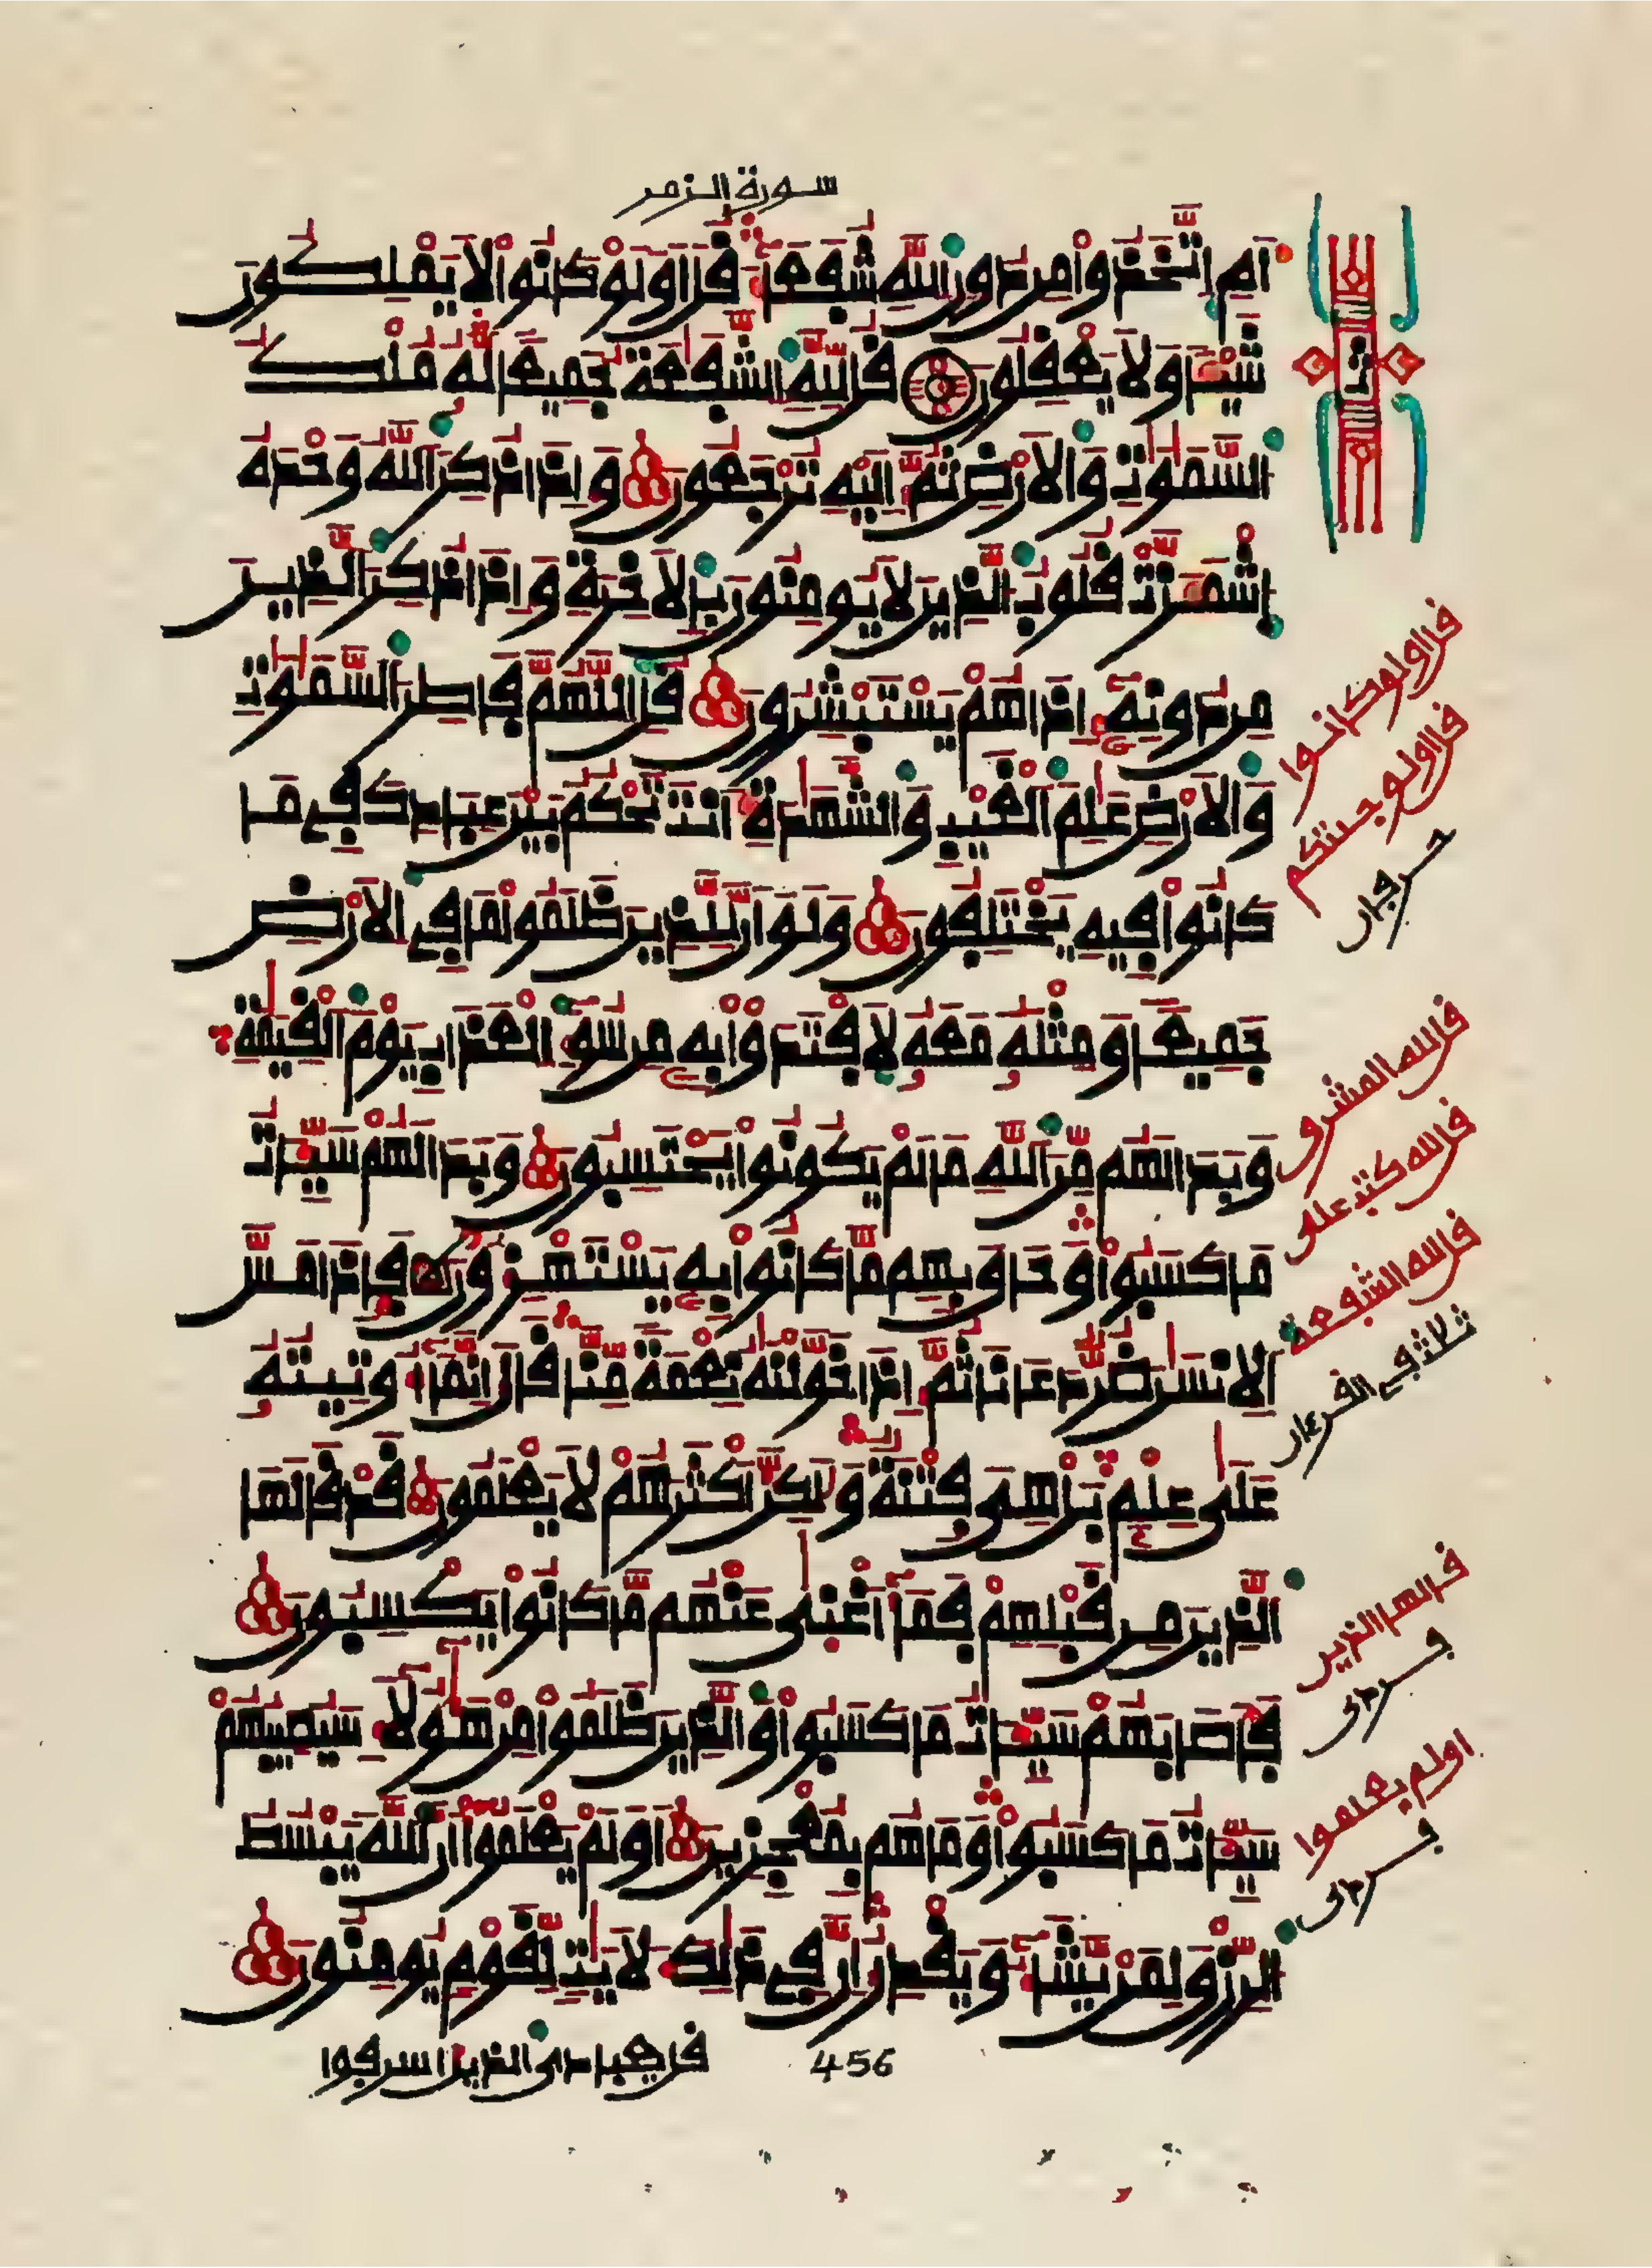 سورة الزمر
اَمِ اِتَّخَذُواْ مِن دُونِ اِ۬للَّهِ شُفَعَآءَ قُلَ اَوَلَوْ كَانُواْ لَا يَمْلِكُونَ
شَيْـٔاً وَلَا يَعْقِلُونَ قُل لِّلهِ اِ۬لشَّفَٰعَةُ جَمِيعاً لَّهُۥ مُلْكُ
اُ۬لسَّمَٰوَٰتِ وَالَارْضِ ثُمَّ إِلَيْهِ تُرْجَعُونَ وَإِذَا ذُكِرَ اَ۬للَّهُ وَحْدَهُ
اُ۪شْمَأَزَّتْ قُلُوبُ اُ۬لذِينَ لَا يُومِنُونَ بِالَاخِرَةِ وَإِذَا ذُكِرَ اَ۬لذِينَ
مِن دُونِهِۦٓ إِذَا هُمْ يَسْتَبْشِرُونَ قُلِ اِ۬للَّهُمَّ فَاطِرَ اَ۬لسَّمَٰوَٰتِ
وَالَارْضِ عَٰلِمَ اَ۬لْغَيْبِ وَالشَّهَٰدَةِ أَنتَ تَحْكُمُ بَيْنَ عِبَادِكَ فِي مَا
كَانُواْ فِيهِ يَخْتَلِفُونَ وَلَوَ اَنَّ لِلذِينَ ظَلَمُواْ مَا فِي اِ۬لَارْضِ
جَمِيعاً وَمِثْلَهُۥ مَعَهُۥ لَافْتَدَوْاْ بِهِۦ مِن سُوٓءِ اِ۬لْعَذَابِ يَوْمَ اَ۬لْقِيَٰمَةِ
وَبَدَا لَهُم مِّنَ اَ۬للَّهِ مَا لَمْ يَكُونُواْ يَحْتَسِبُونَ وَبَدَا لَهُمْ سَيِّـَٔاتُ
مَا كَسَبُواْ وَحَاقَ بِهِم مَّا كَانُواْ بِهِۦ يَسْتَهْزِءُونَ فَإِذَا مَسَّ
اَ۬لِانسَٰنَ ضُرٌّ دَعَانَا ثُمَّ إِذَا خَوَّلْنَٰهُ نِعْمَةً مِّنَّا قَالَ إِنَّمَآ أُوتِيتُهُۥ
عَلَىٰ عِلْمِۢ بَلْ هِيَ فِتْنَةٌ وَلَٰكِنَّ أَكْثَرَهُمْ لَا يَعْلَمُونَ قَدْ قَالَهَا
اَ۬لذِينَ مِن قَبْلِهِمْ فَمَآ أَغْنَىٰ عَنْهُم مَّا كَانُواْ يَكْسِبُونَ
فَأَصَابَهُمْ سَيِّـَٔاتُ مَا كَسَبُواْ وَالذِينَ ظَلَمُواْ مِنْ هَٰٓؤُلَآءِ سَيُصِيبُهُمْ
سَيِّـَٔاتُ مَا كَسَبُواْ وَمَا هُم بِمُعْجِزِينَ أَوَلَمْ يَعْلَمُوٓاْ أَنَّ اَ۬للَّهَ يَبْسُطُ
اُ۬لرِّزْقَ لِمَنْ يَّشَآءُ وَيَقْدِرُ إِنَّ فِي ذَٰلِكَ لَأٓيَٰتٍ لِّقَوْمٍ يُومِنُونَ
قل يعبادى الذين اسرفوا
456
قل اولو كانوا
قل اولو جئتكم
حرفان
قل لله المشرق
قل لله كتب على
قل لله الشفعة
ثلاث في القرءان
قد قالها الذين
اولم يعلموا